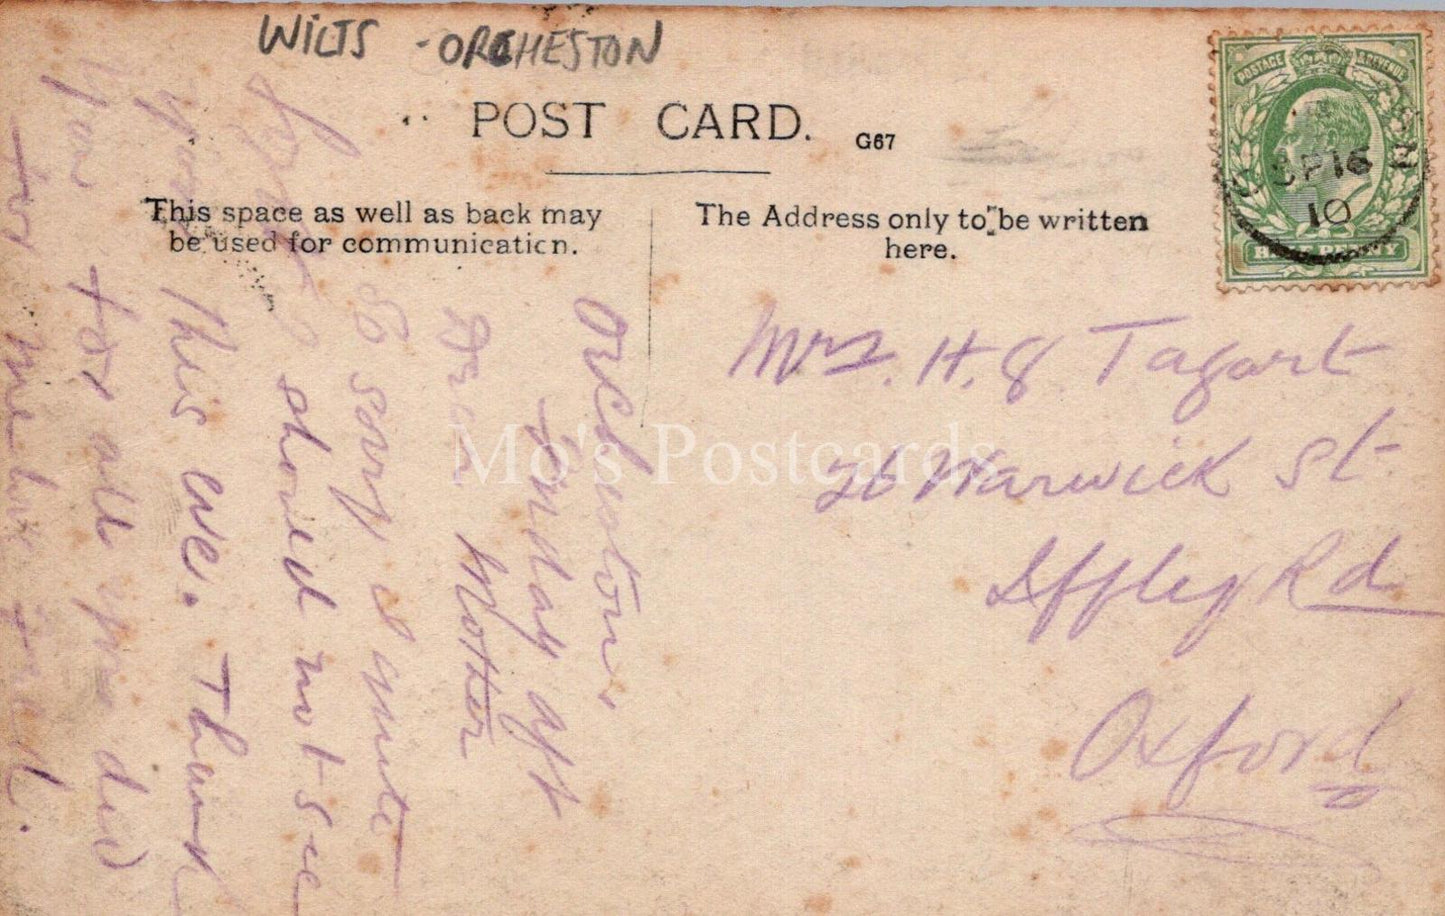 WILTS - ORCHESTON
POST CARD.
G67
This space as well as back may
be used for communication.
The Address only to be written
here.
POSTAGE REVENUE
SP 16
10
HALF PENNY
Mrs. H. J Tagart
26 Warwick St
Iffley Rd
Oxford
Orcheston.
Sunday aft
Dear Mother
So sorry I quite
should not see
this eve. Thank
You for all you did
for me
Mo's Postcards